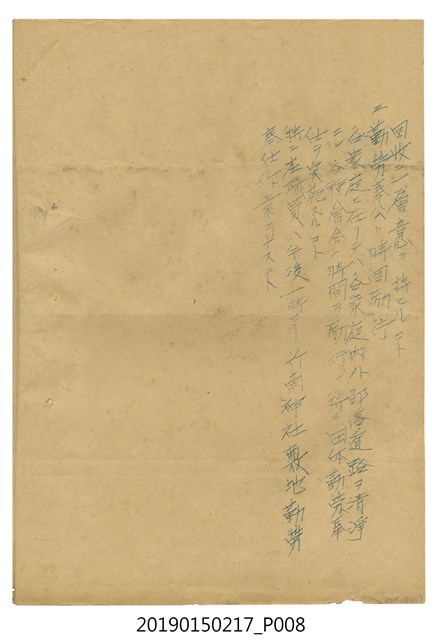 回收ニ層意ヲ持ヒルコト
二勤労奉仕ト時間励行
各家庭ニ在リテハ各家庭内外部落道路ヲ清浄
シ各種會合ノ時間ヲ励行シ特ニ団体勤労奉
仕ヲ実施スルコト
特ニ産所員ハ午後一時ヨリ竹南神社敷地勤労
奉仕作業ヲナスコト
20190150217_P008